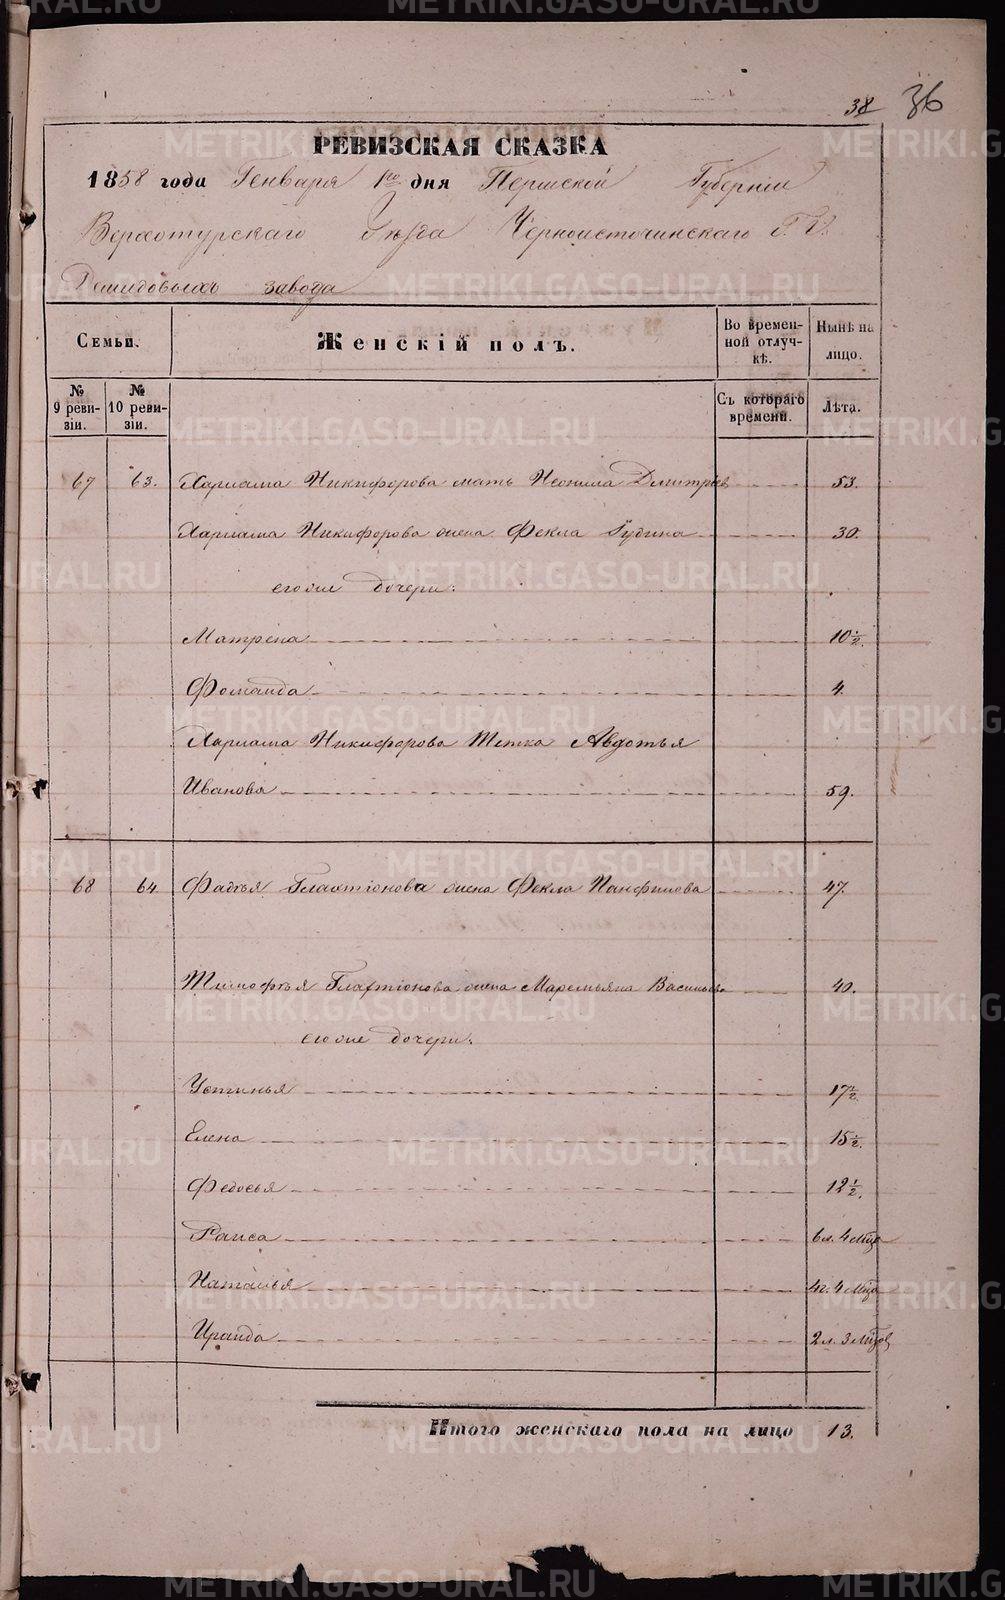 38 36
РЕВИЗСКАЯ СКАЗКА
1858 года Генваря 1го дня Пермской Губернiи
Верхотурскаго Уѣзда Черноисточинскаго Г.Г.
Демидовыхъ завода
Семьи.
Женскiй полъ.
Во времен-
ной отлуч-
кѣ.
Нынѣ на
лицо.
№
9 реви-
зiи.
№
10 реви-
зiи.
Съ котораго
времени.
Лѣта.
67 63. Харлама Никифорова мать Неонила Дмитрiев 53.
Харлама Никифорова жена Фекла 30.
его же дочери:
Матрена 10 1/2.
4.
Харлама Никифорова Тетка Авдотья
Иванова 59.
68 64. Фадѣя Галахтiонова жена Фекла Панфилова 47.
Тимофѣя Галахтiонова жена Маремьяна Васильева 40.
его же дочери:
Устинья 17 1/2.
Елена 15 1/2.
Федосья 12 1/2.
Раиса 6 л. 4 мца
Наталья 4 г. 4 мца
Ираида 2 л. 3 мцов
Итого женскаго пола на лицо 13.
METRIKI.GASO-URAL.RU